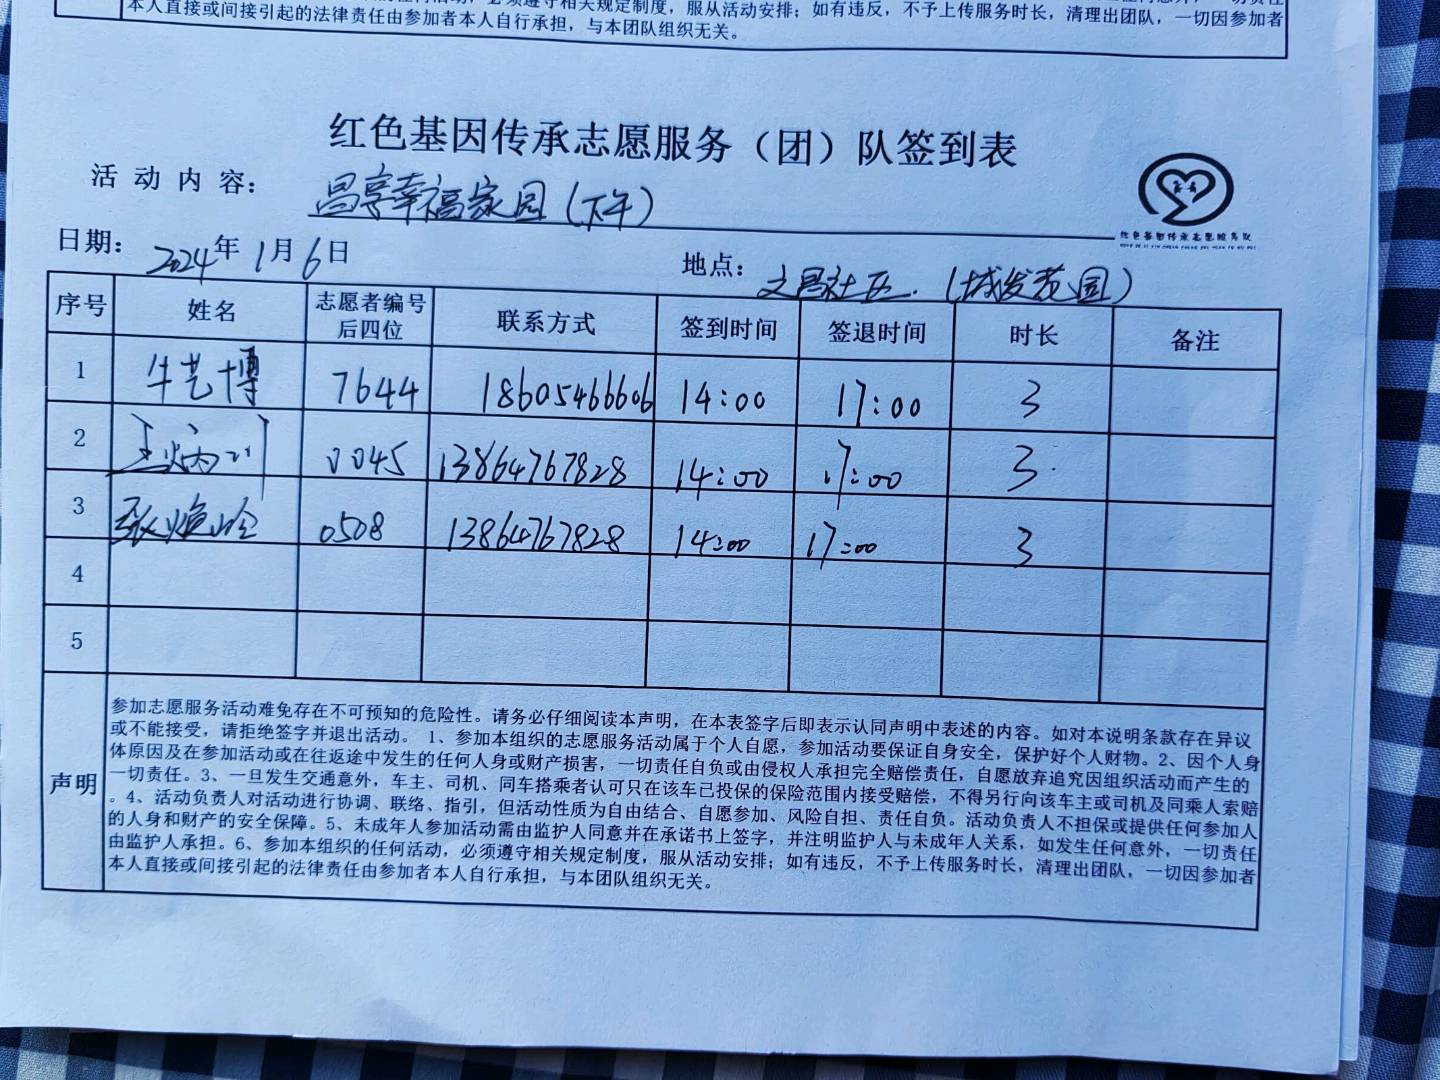 本人直接或间接引起的法律责任由参加者本人自行承担，与本团队组织无关。
必须遵守相关规定制度，服从活动安排；如有违反，不予上传服务时长，清理出团队，一切因参加者
红色基因传承志愿服务（团）队签到表
活动内容： 昌享幸福家园（下午）
红色基因传承志愿服务队
日期： 2024年1月6日 地点： 文昌社区.（城发花园）
序号 姓名 志愿者编号后四位 联系方式 签到时间 签退时间 时长 备注
1 牛艺博 7644 18605466606 14:00 17:00 3
2 王炳川 0045 13864767828 14:00 17:00 3
3 张焕玲 0508 13864767828 14:00 17:00 3
4
5
声明
参加志愿服务活动难免存在不可预知的危险性。请务必仔细阅读本声明，在本表签字后即表示认同声明中表述的内容。如对本说明条款存在异议
或不能接受，请拒绝签字并退出活动。 1、参加本组织的志愿服务活动属于个人自愿，参加活动要保证自身安全，保护好个人财物。2、因个人身
体原因及在参加活动或在往返途中发生的任何人身或财产损害，一切责任自负或由侵权人承担完全赔偿责任，自愿放弃追究因组织活动而产生的
一切责任。3、一旦发生交通意外，车主、司机、同车搭乘者认可只在该车已投保的保险范围内接受赔偿，不得另行向该车主或司机及同乘人索赔
。4、活动负责人对活动进行协调、联络、指引，但活动性质为自由结合、自愿参加、风险自担、责任自负。活动负责人不担保或提供任何参加人
的人身和财产的安全保障。5、未成年人参加活动需由监护人同意并在承诺书上签字，并注明监护人与未成年人关系，如发生任何意外，一切责任
由监护人承担。6、参加本组织的任何活动，必须遵守相关规定制度，服从活动安排；如有违反，不予上传服务时长，清理出团队，一切因参加者
本人直接或间接引起的法律责任由参加者本人自行承担，与本团队组织无关。